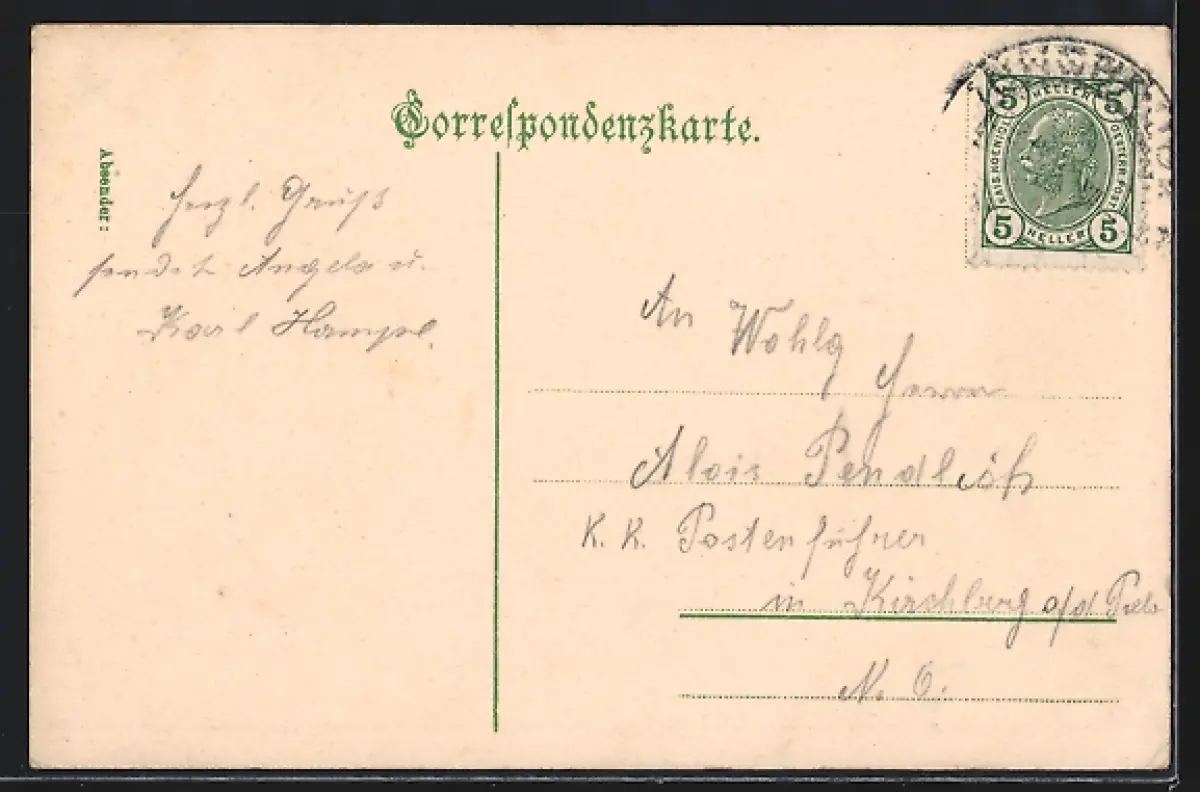 Correspondenzkarte.
Absender:
Herzl. Gruß
sendet Angela u.
Karl Hampl.
5 HELLER 5
KAIS. KOENIGL. OESTERR. POST
5 HELLER 5
An Wohlg
Herrn
Alois
K. K. Postenführer
in Kirchberg a/d
N. Ö.